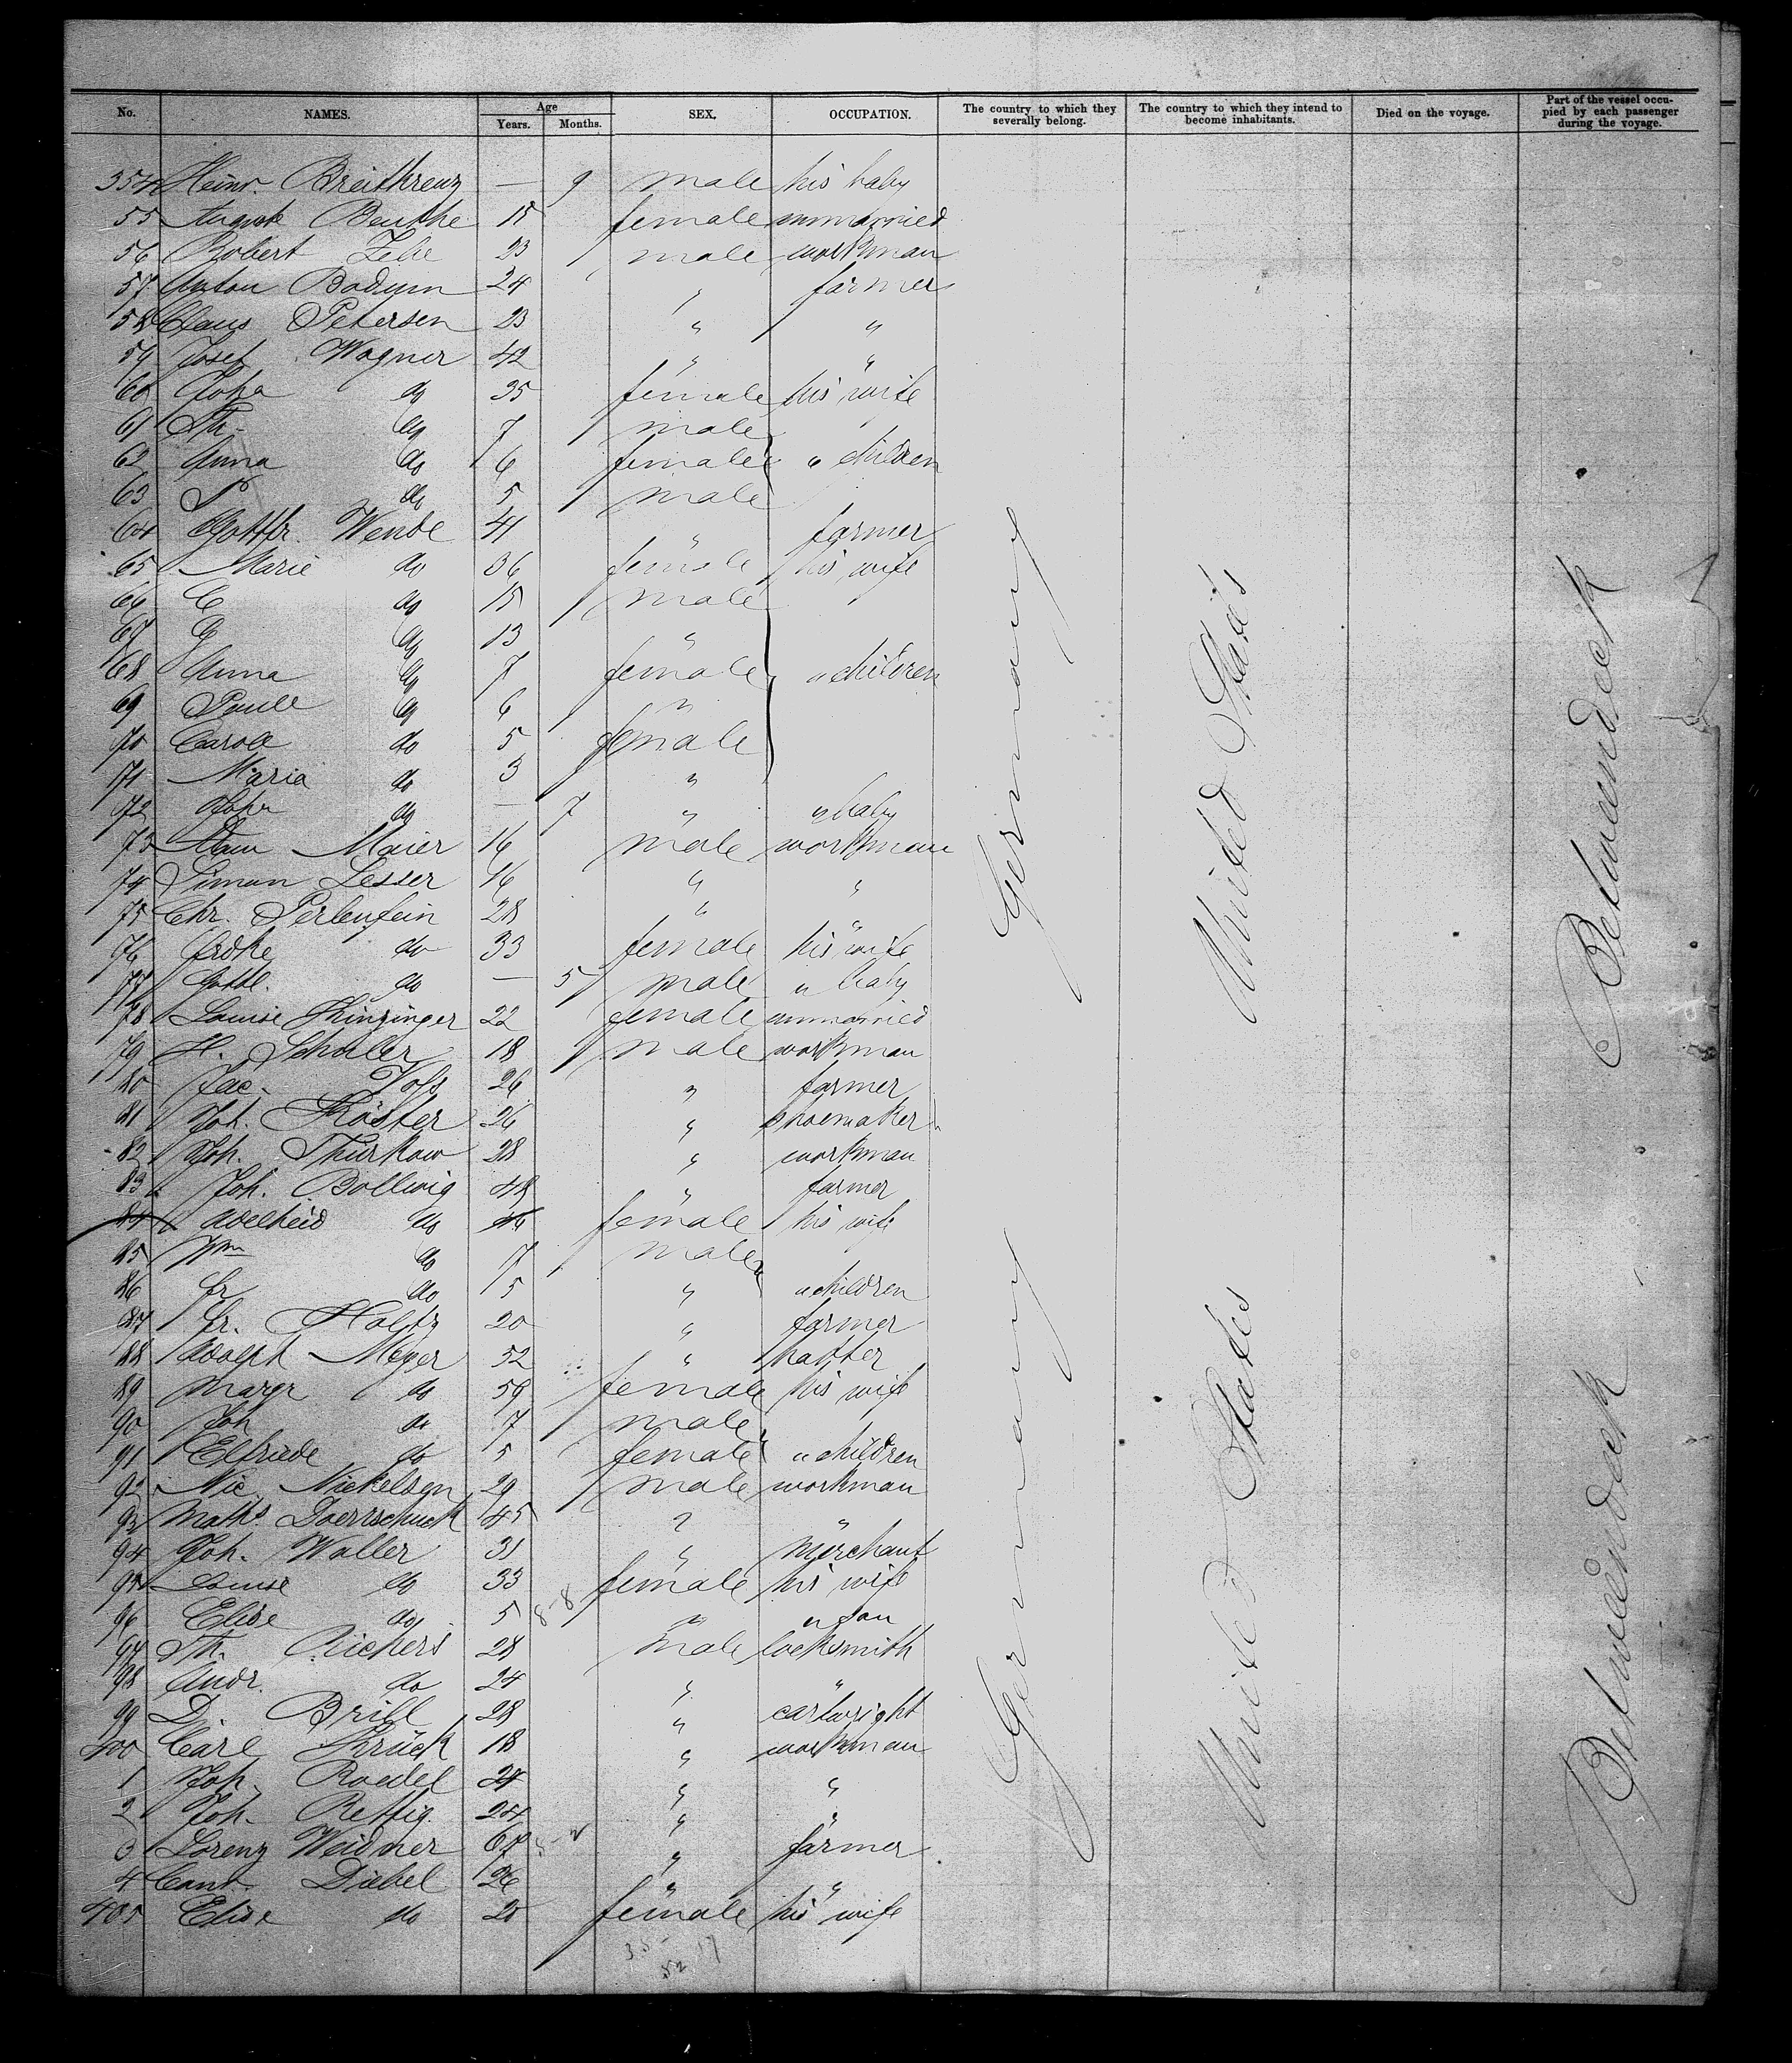 No. NAMES. Age Years. Months. SEX. OCCUPATION. The country to which they severally belong. The country to which they intend to become inhabitants. Died on the voyage. Part of the vessel occupied by each passenger during the voyage.
354 Heinr. Breitkreuz — 9 male his baby
55 August Beuthe 15 female unmarried
56 Robert Zehe 23 male workman
57 Anton Badum 24 " farmer
58 Claus Petersen 23 " "
59 Josef Wagner 42 " "
60 Joha do 35 female his wife
61 Th. do 7 male
62 Anna do 6 female " children
63 P do 5 male
64 Gottfr. Wende 41 " farmer
65 Marie do 36 female his wife
66 C do 15 male
67 G do 13 "
68 Anna do 7 female " children
69 Paul do 6 "
70 Carol do 5 female
71 Maria do 3 "
72 Joha do — 7 " " baby
73 Adam Maier 16 male workman
74 Simon Lesser 16 " "
75 Chr. Perlenfein 28 " "
76 Frdke do 33 female his wife
77 Gottl. do — 5 male " baby
78 Louise Kinzinger 22 female unmarried
79 H. Schuler 18 male workman
80 Jac. Vols 26 " farmer
81 Joh. Köster 26 " shoemaker
82 Joh. Thurkow 28 " workman
83 Joh. Bollwig 48 " farmer
84 Adelheid do 46 female his wife
85 Wm do 7 male
86 Fr do 5 " " children
87 Fr. Holtz 20 " farmer
88 Adolph Meyer 52 " hatter
89 Margr do 59 female his wife
90 Joh do 7 male
91 Elfriede do 5 female " children
92 Nic. Nickelsen 29 male workman
93 Maths. Doerrschuck 45 " "
94 Joh. Waller 31 " merchant
95 Louise do 33 female his wife
96 Elise do 5 8-8 " " son
97 Th. Richers 28 male locksmith
98 Andr. do 24 " "
99 D. Brill 28 " cartwright
400 Carl Krück 18 " workman
1 Joh. Roedel 24 " "
2 Joh. Rettig 24 " "
3 Lorenz Weidner 67 " farmer
4 Conr. Diebel 26 " "
405 Elise do 20 female his wife
Germany
United States
Betweendeck
Germany
United States
Betweendeck